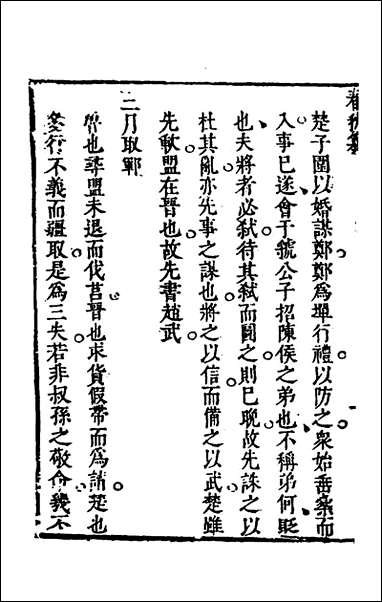 春秋
楚子圍以婚謀鄭鄭爲墠行禮以防之衆始垂櫜而
入事已遂會于虢公子招陳侯之弟也不稱弟何貶
也夫將者必弑待其弑而圖之則已晚故先誅之以
杜其亂亦先事之謀也將之以信而備之以武楚雖
先歃盟在晉也故先書趙武
三月取鄆
魯也尋盟未退而伐莒晉也求貨假帶而爲請楚也
多行不義而疆取是爲三失若非叔孫之敬命義不